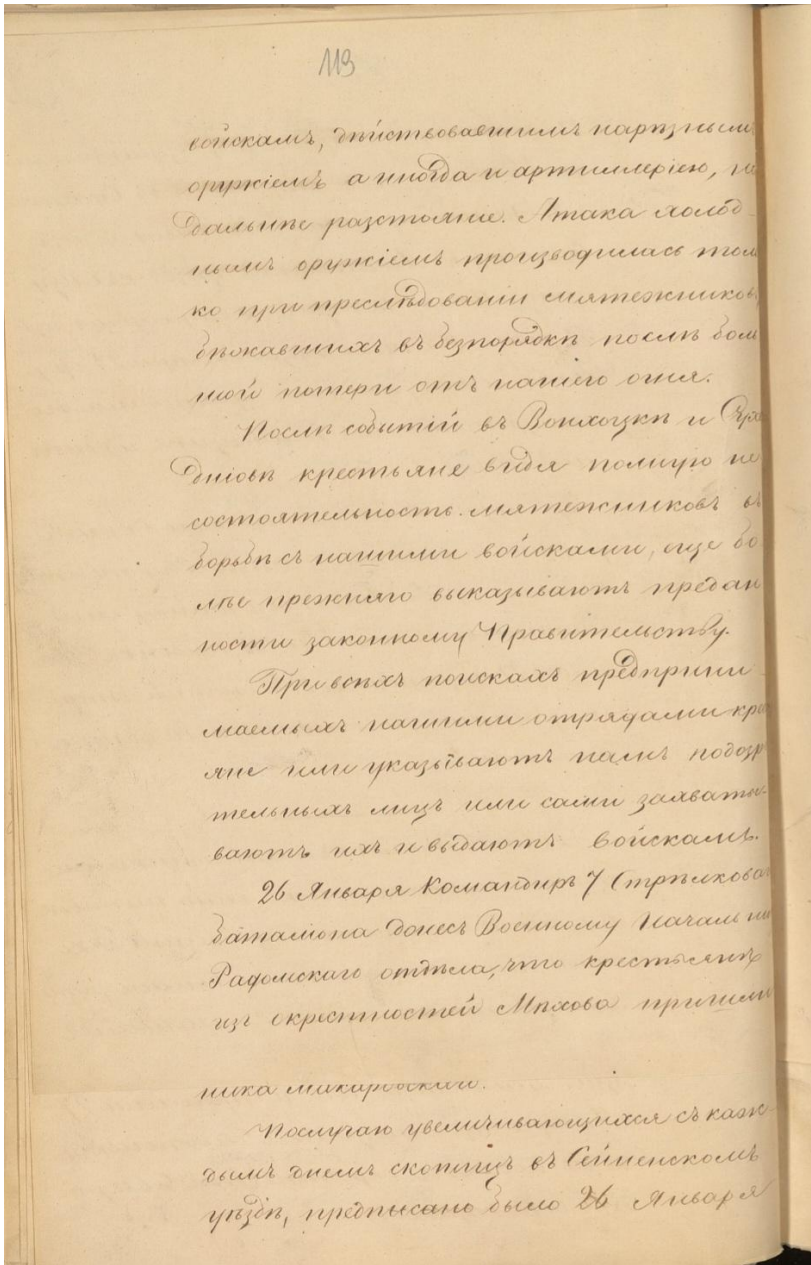 113
войскамъ, дѣйствовавшимъ нарѣзнымъ
оружіемъ а иногда и артиллеріею, на
дальнѣе разстояніе. Атака холод-
нымъ оружіемъ производилась толь
ко при преслѣдованіи мятежниковъ,
бѣжавшихъ въ безпорядкѣ послѣ боль
шой потери отъ нашего огня.
Послѣ событій въ Вонхоцкѣ и
дніовѣ крестьяне видя полную не
состоятельность мятежниковъ въ
борьбѣ съ нашими войсками, еще бо
лѣе прежняго выказываютъ предан
ности законному Правительству.
При всѣхъ поискахъ предприни-
маемыхъ нашими отрядами
яне или указываютъ намъ подозр
тельныхъ лицъ или сами захваты-
ваютъ ихъ и выдаютъ войскамъ.
26 Января Командиръ 7 Стрѣлковаг
баталіона донесъ Военному Начальни
Радомскаго отдѣла, что крестьяне
изъ окрестностей Мѣхова пришли
ника макаровскій.
Послучаю увеличивающихся съ каж-
дымъ днемъ скопищъ въ Сейненскомъ
уѣздѣ, предписано было 26 Января